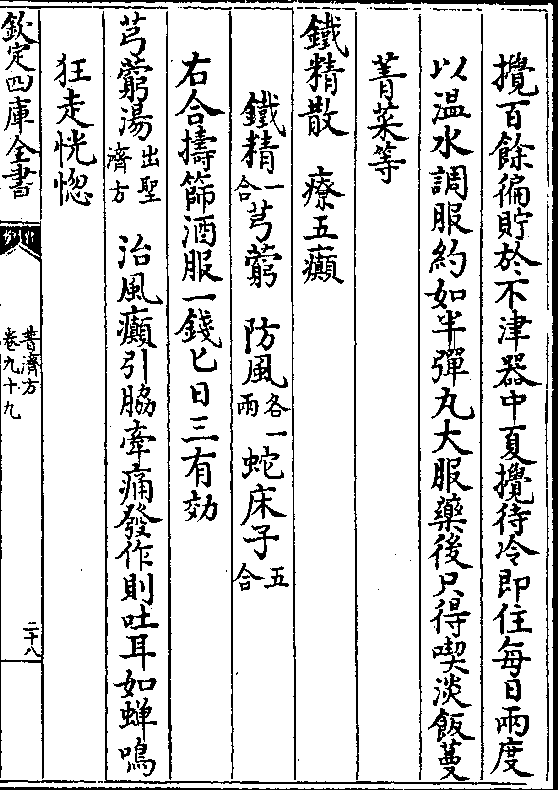 攪百餘徧貯於不津器中夏攪待冷即住每日兩度
以温水調服約如半彈丸大服藥後只得喫淡飯蔓
菁菜等
鐵精散　療五癲
鐵精一合芎藭　防風各一兩蛇床子五合
右合擣篩酒服一錢匕日三有効
芎藭湯出聖濟方　治風癲引脇牽痛發作則吐耳如蝉鳴
狂走恍惚
欽定四庫全書
普濟方
卷九十九
二十八